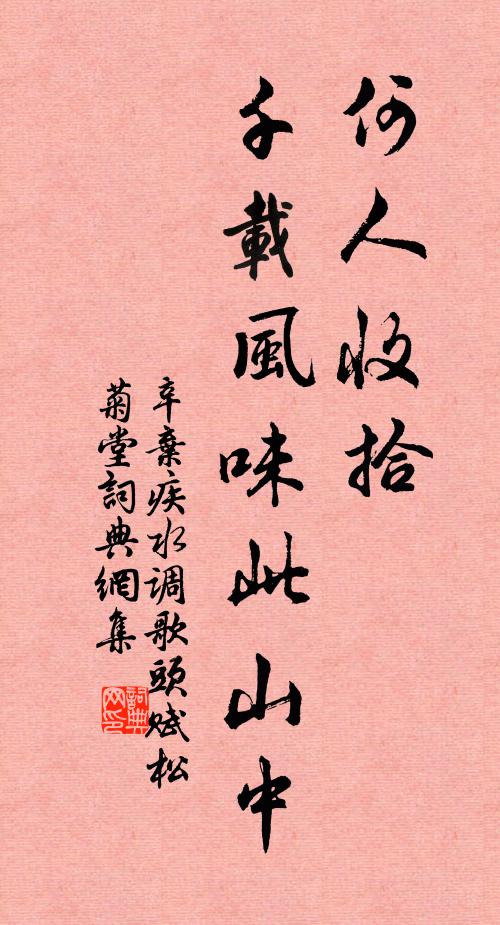 何人收拾
千載風味此山中
辛棄疾水调歌頭賦松
菊堂詞典網集
詞典网印